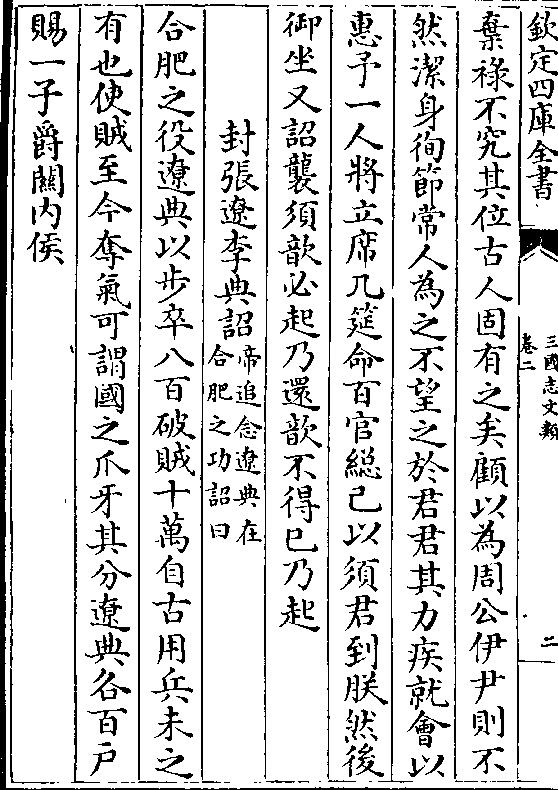 欽定四庫全書
三國志文類
卷二
二
棄祿不究其位古人固有之矣顧以為周公伊尹則不
然潔身徇節常人為之不望之於君君其力疾就會以
惠予一人將立席几筵命百官緫已以須君到朕然後
御坐又詔襲須歆必起乃還歆不得已乃起
封張遼李典詔帝追念遼典在
合肥之功詔曰
合肥之役遼典以步卒八百破賊十萬自古用兵未之
有也使賊至今奪氣可謂國之爪牙其分遼典各百戸
賜一子爵關內侯